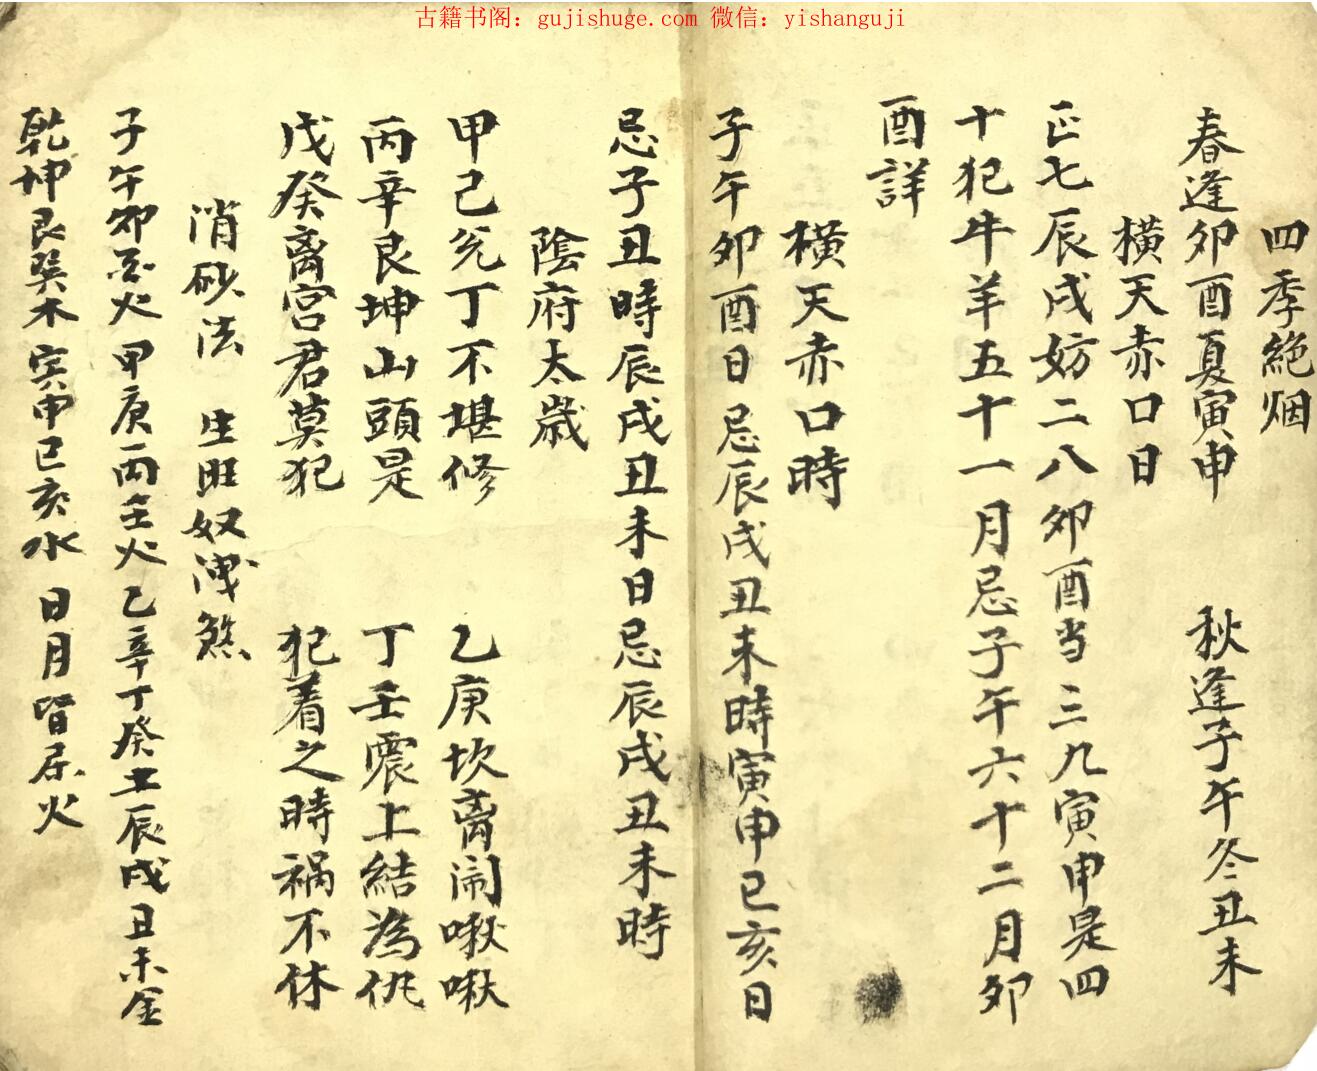 古籍书阁：gujishuge.com 微信：yishanguji
四季絶烟
春逢卯酉夏寅申 秋逢子午冬丑未
橫天赤口日
正七辰戌妨二八卯酉当三九寅申是四
十犯牛羊五十一月忌子午六十二月卯
酉詳
橫天赤口時
子午卯酉日忌辰戌丑未時寅申巳亥日
忌子丑時辰戌丑未日忌辰戌丑未時
陰府太歲
甲己兊丁不堪修 乙庚坎离闹啾啾
丙辛艮坤山頭是 丁壬震上結為仇
戊癸离宫君莫犯 犯着之時祸不休
消砂法 生旺奴洩煞
子午卯酉火甲庚丙壬火乙辛丁癸土辰戌丑未金
乾坤艮巽木寅申巳亥水日月皆属火